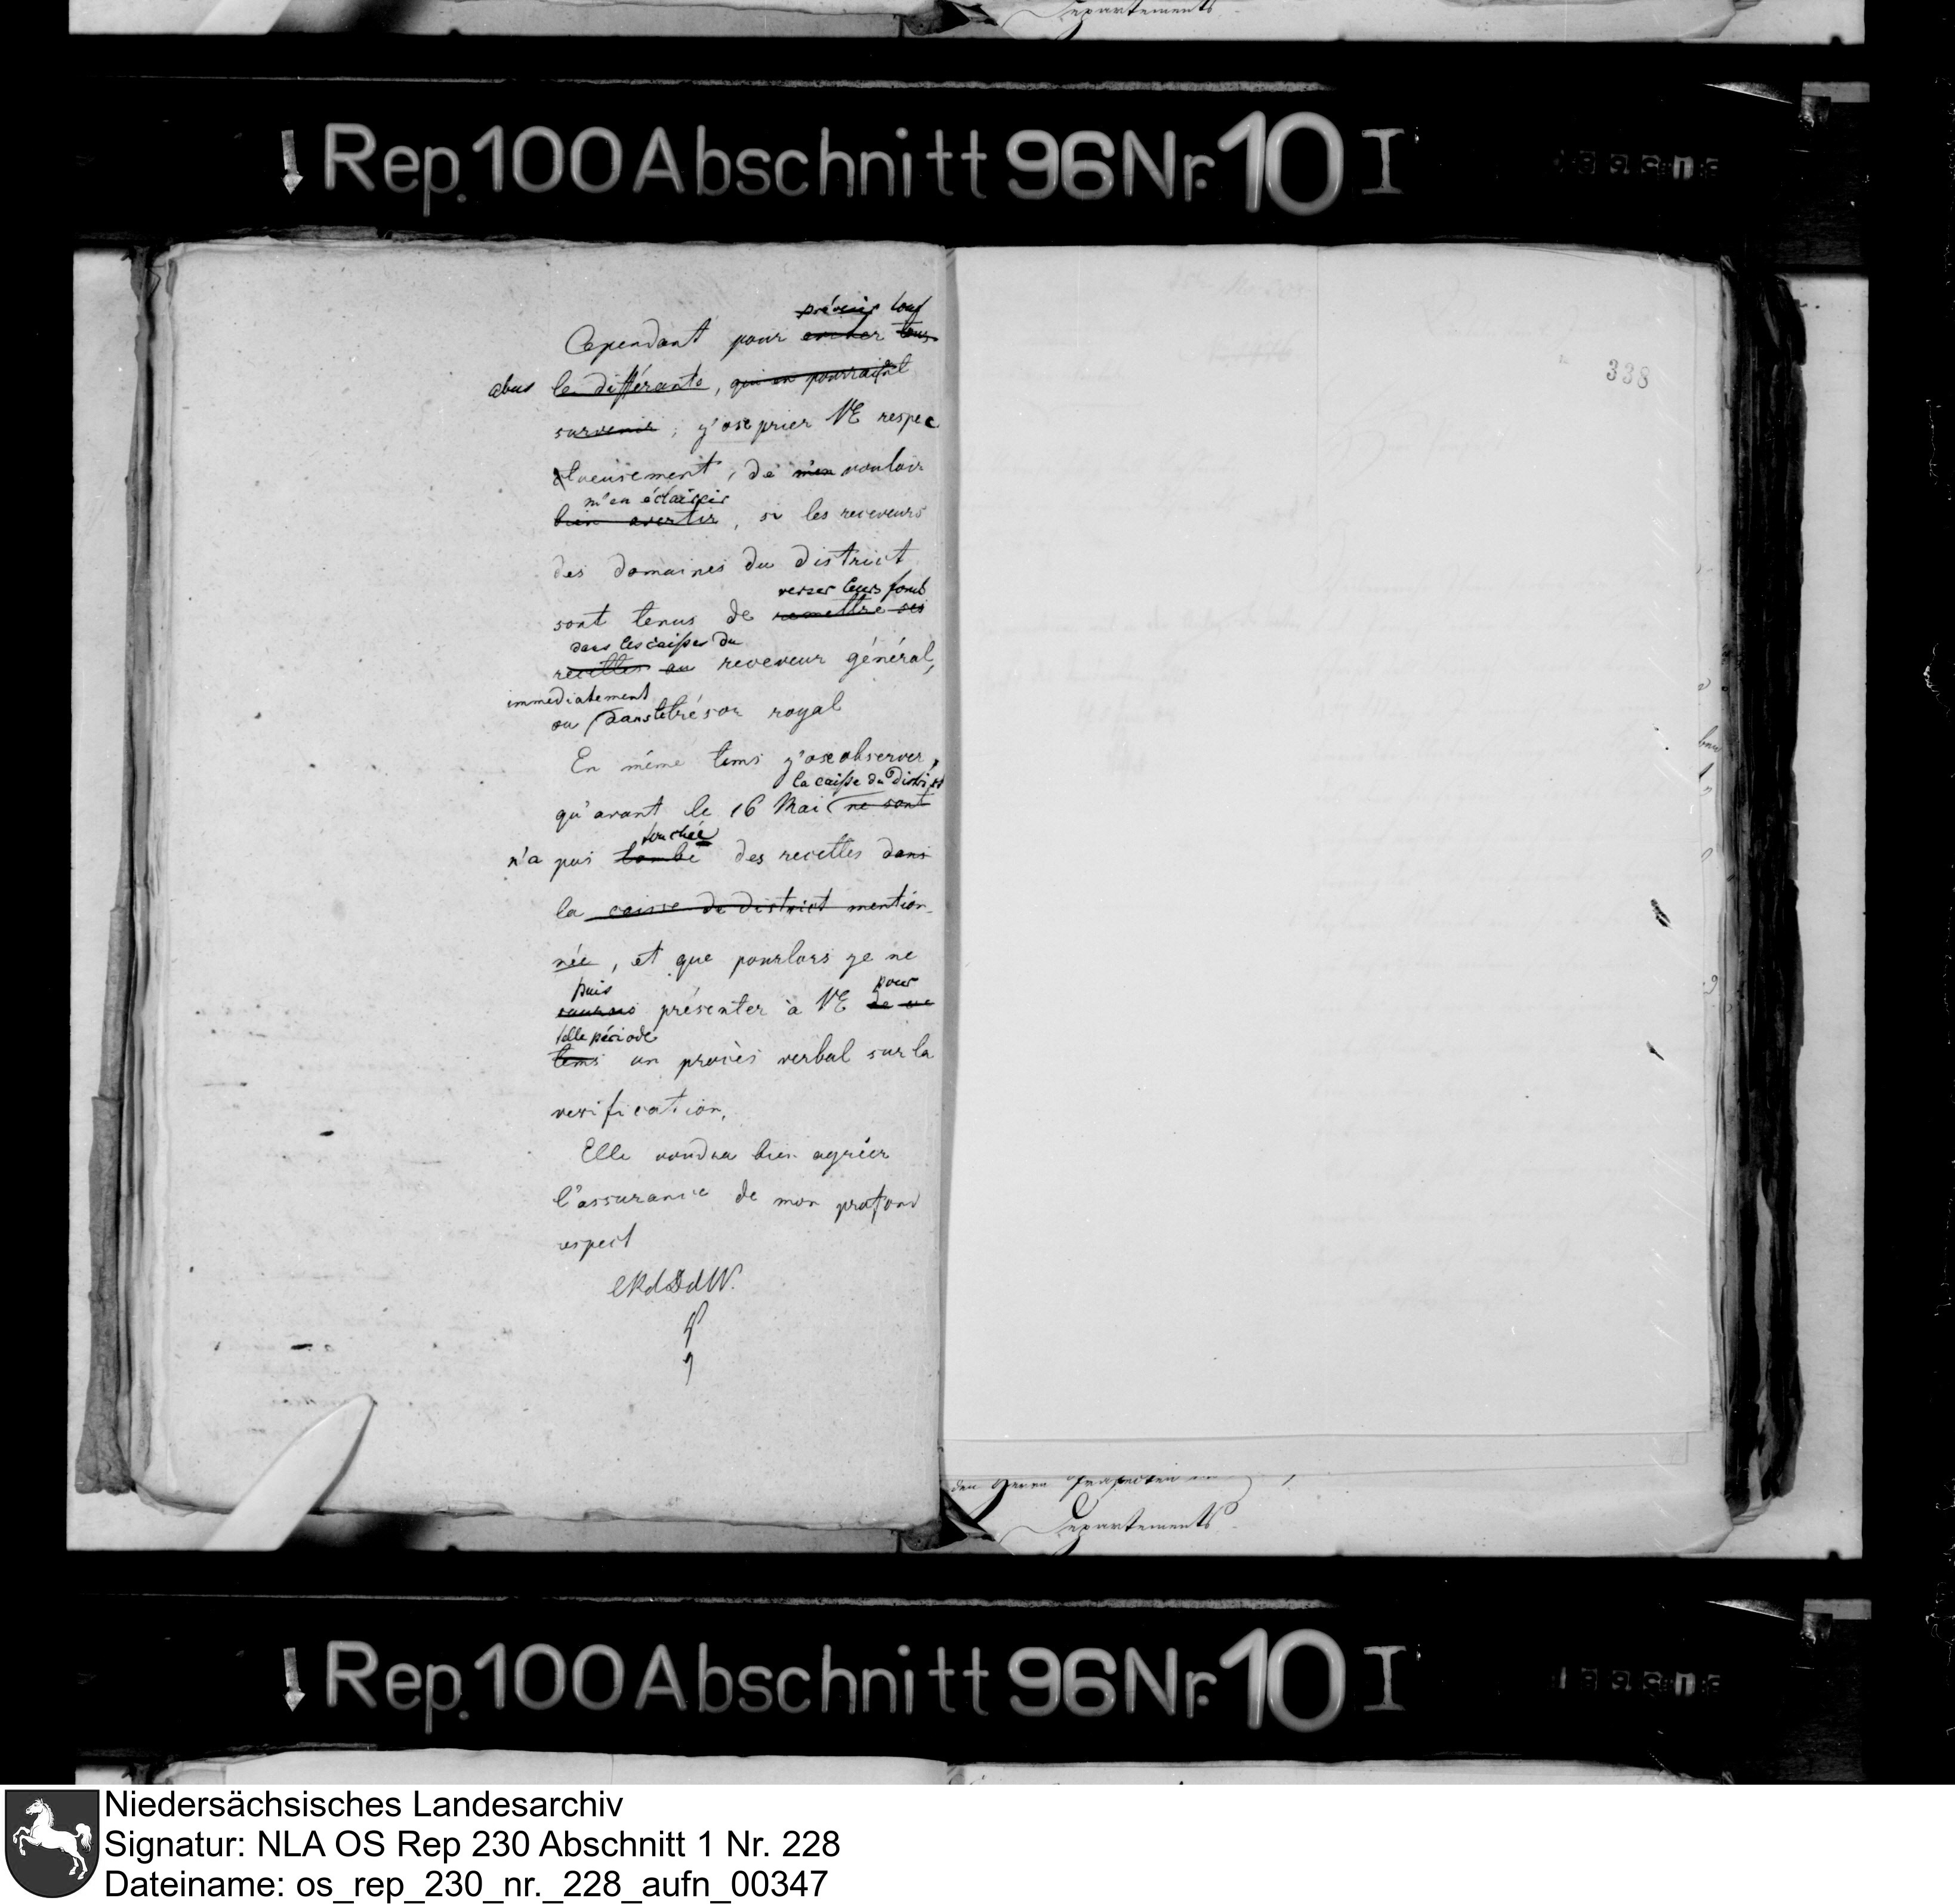 Departements
Rep. 100 Abschnitt 96 Nr. 10 I
338
prévenir tous
Cependant pour eviter tous
abus les différants, qui en pourraint
survenir, j'ose prier VE respec
tueusement, de m'en vouloir
m'en éclaircir
bien avertir, si les receveurs
des domaines du district
verser leurs fonds
sont tenus de remettre ses
dans les caisses du
recettes au receveur général,
immediatement
ou dans le trésor royal
En même tems j'ose observer,
la caisse du District
qu'avant le 16 Mai ne sont
touchée
n'a pas tombé des recettes dans
la caisse de district mention
née, et que pourlors je ne
puis pour
saurais présenter à VE de ce
telle période
tems un procès verbal sur la
verification.
Elle voudra bien agréer
l'assurance de mon profond
respect
den Herrn Praefecten
Departements
Rep. 100 Abschnitt 96 Nr. 10 I
Niedersächsisches Landesarchiv
Signatur: NLA OS Rep 230 Abschnitt 1 Nr. 228
Dateiname: os_rep_230_nr._228_aufn_00347